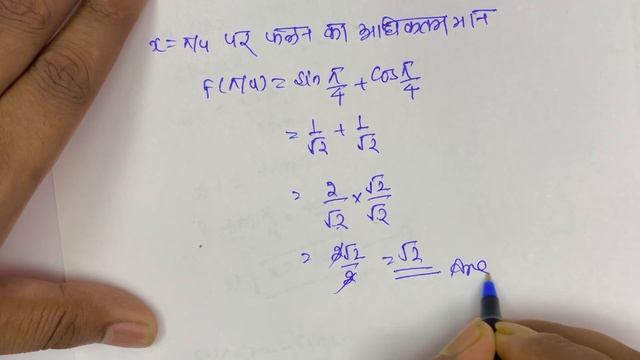 x = π/4 पर फलन का अधिकतम मान
f(π/4) = sin π/4 + cos π/4
= 1/√2 + 1/√2
= 2/√2 × √2/√2
= 2√2/2 = √2 Ans